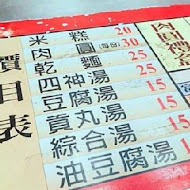 價目表
米糕 20
肉圓(每份) 30
乾麵
四神湯
豆腐湯 15
貢丸湯 15
綜合湯
油豆腐湯
肉圓傳